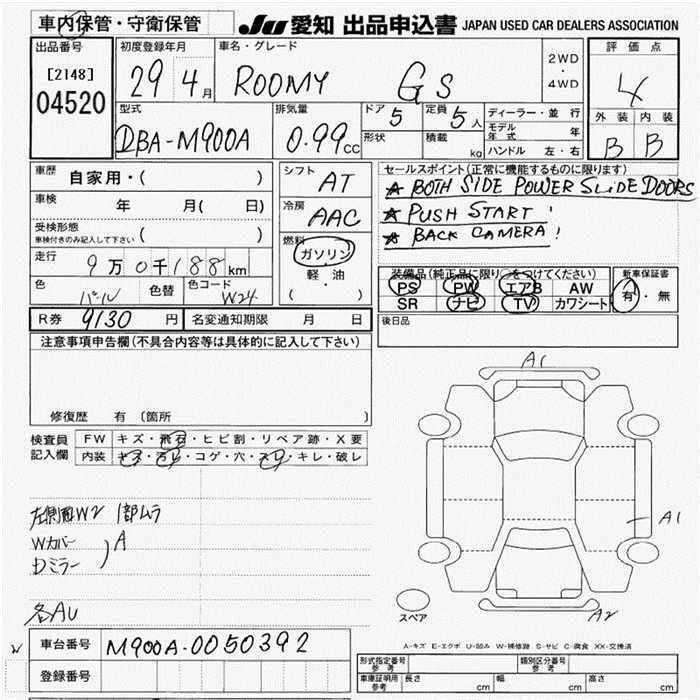 車内保管・守衛保管 JU 愛知 出品申込書 JAPAN USED CAR DEALERS ASSOCIATION
出品番号
[2148]
04520
初度登録年月
29 4月
車名・グレード
ROOMY GS
2WD
・
4WD
評価点
4
外装 内装
B B
型式
DBA-M900A
排気量
0.99cc
ドア 5
定員 5人
形状
積載 kg
ディーラー・並行
モデル年式 年
ハンドル 左・右
車歴 自家用・( )
車検 年 月( 日)
受検形態
車検付きのみ記入して下さい ( )
走行 9万0千188km
色 パール 色替 色コード W24
シフト AT
冷房 AAC
燃料
ガソリン
軽・油
( ・ )
セールスポイント(正常に機能するものに限ります)
★ BOTH SIDE POWER SLIDE DOORS
★ PUSH START !
★ BACK CAMERA !
装備品(純正品に限り○をつけてください)
PS PW エアB AW
SR ナビ TV カワシート
新車保証書
有・無
R券 9130円 名変通知期限 月 日
後日品
注意事項申告欄(不具合内容等は具体的に記入して下さい)
修復歴 有 〔箇所
検査員記入欄
FW キズ・飛石・ヒビ割・リペア跡・X要
内装 キズ・汚レ・コゲ・穴・スレ・キレ・破レ
左側面W2 1部ムラ
Wカバー
Dミラー
A
各AU
A1
A1
A2
スペア
A-キズ E-エクボ U-凹み W-補修跡 S-サビ C-腐食 XX-交換済
車台番号 M900A-0050392
登録番号
形式指定番号
参考
類別区分番号
参考
車庫証明用
参考
長さ cm 幅 cm 高さ cm